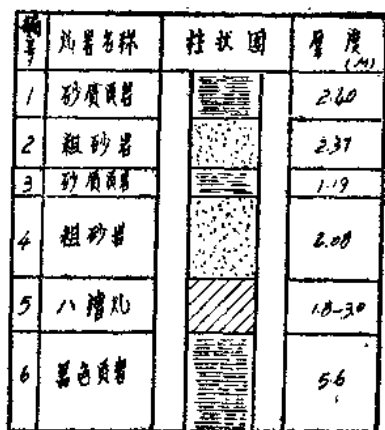 編号 炭岩名称 柱状图 厚度(M)
1 砂質頁岩 2.60
2 粗砂岩 2.37
3 砂質頁岩 1.19
4 粗砂岩 2.08
5 八槽炭 1.8-3.0
6 黑色頁岩 5.6